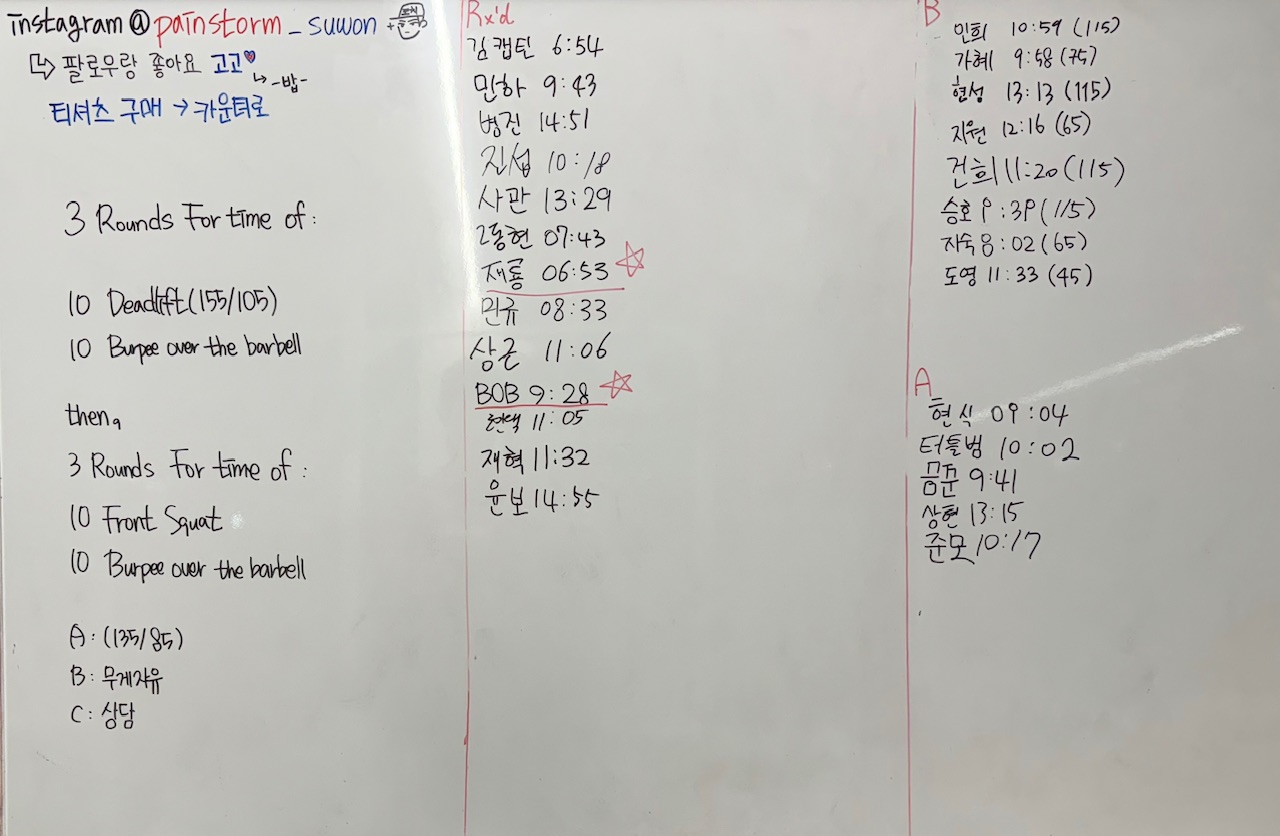 instagram @ painstorm _ suwon
↳ 팔로우랑 좋아요 고고♥
↳ -밥-
티셔츠 구매 → 카운터로
3 Rounds For time of :
10 Deadlift (155/105)
10 Burpee over the barbell
then,
3 Rounds For time of :
10 Front Squat
10 Burpee over the barbell
A : (135/85)
B : 무게자유
C : 상담
Rx'd
김캡틴 6:54
민하 9:43
병진 14:51
진섭 10:18
사관 13:29
2동현 07:43
재룡 06:53 ☆
민규 08:33
상근 11:06
BOB 9:28 ☆
현택 11:05
재혁 11:32
윤보 14:55
B
민희 10:59 (115)
가혜 9:58 (75)
현성 13:13 (115)
지원 12:16 (65)
건희 11:20 (115)
승호 9:39 (115)
지숙 :02 (65)
도영 11:33 (45)
A
현식 09:04
터틀범 10:02
9:41
상현 13:15
준모 10:17